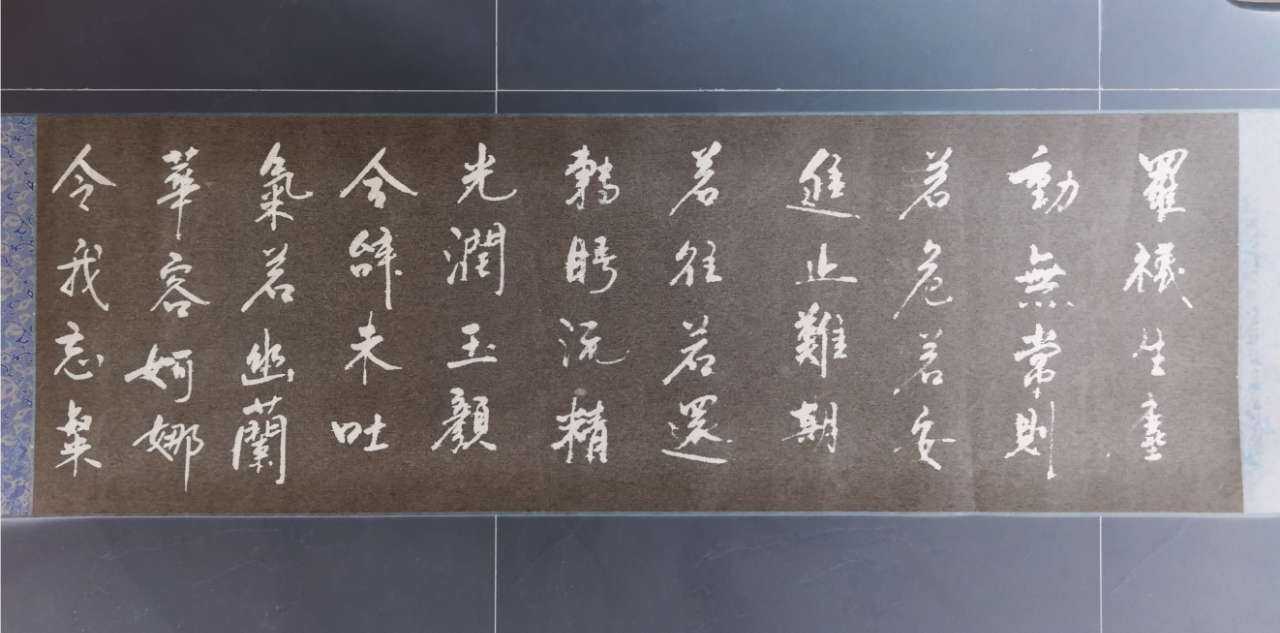 羅襪生塵
動無常則
若危若安
進止難期
若往若還
轉眄流精
光潤玉顏
含辭未吐
氣若幽蘭
華容婀娜
令我忘餐